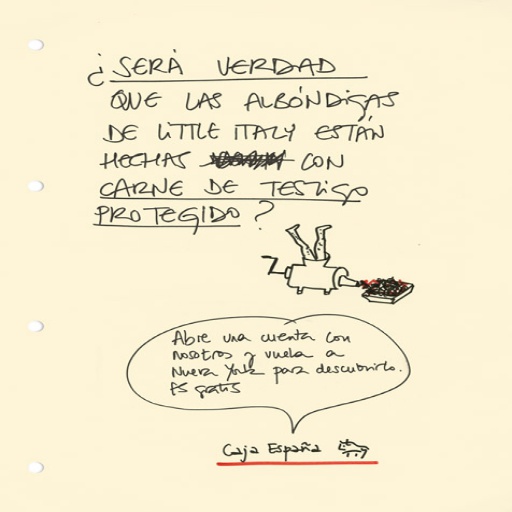 ¿SERÁ VERDAD
QUE LAS ALBÓNDIGAS
DE LITTLE ITALY ESTÁN
HECHAS CON
CARNE DE TESTIGO
PROTEGIDO?
Abre una cuenta con
nosotros y vuela a
Nueva York para descubrirlo.
Es gratis
Caja España